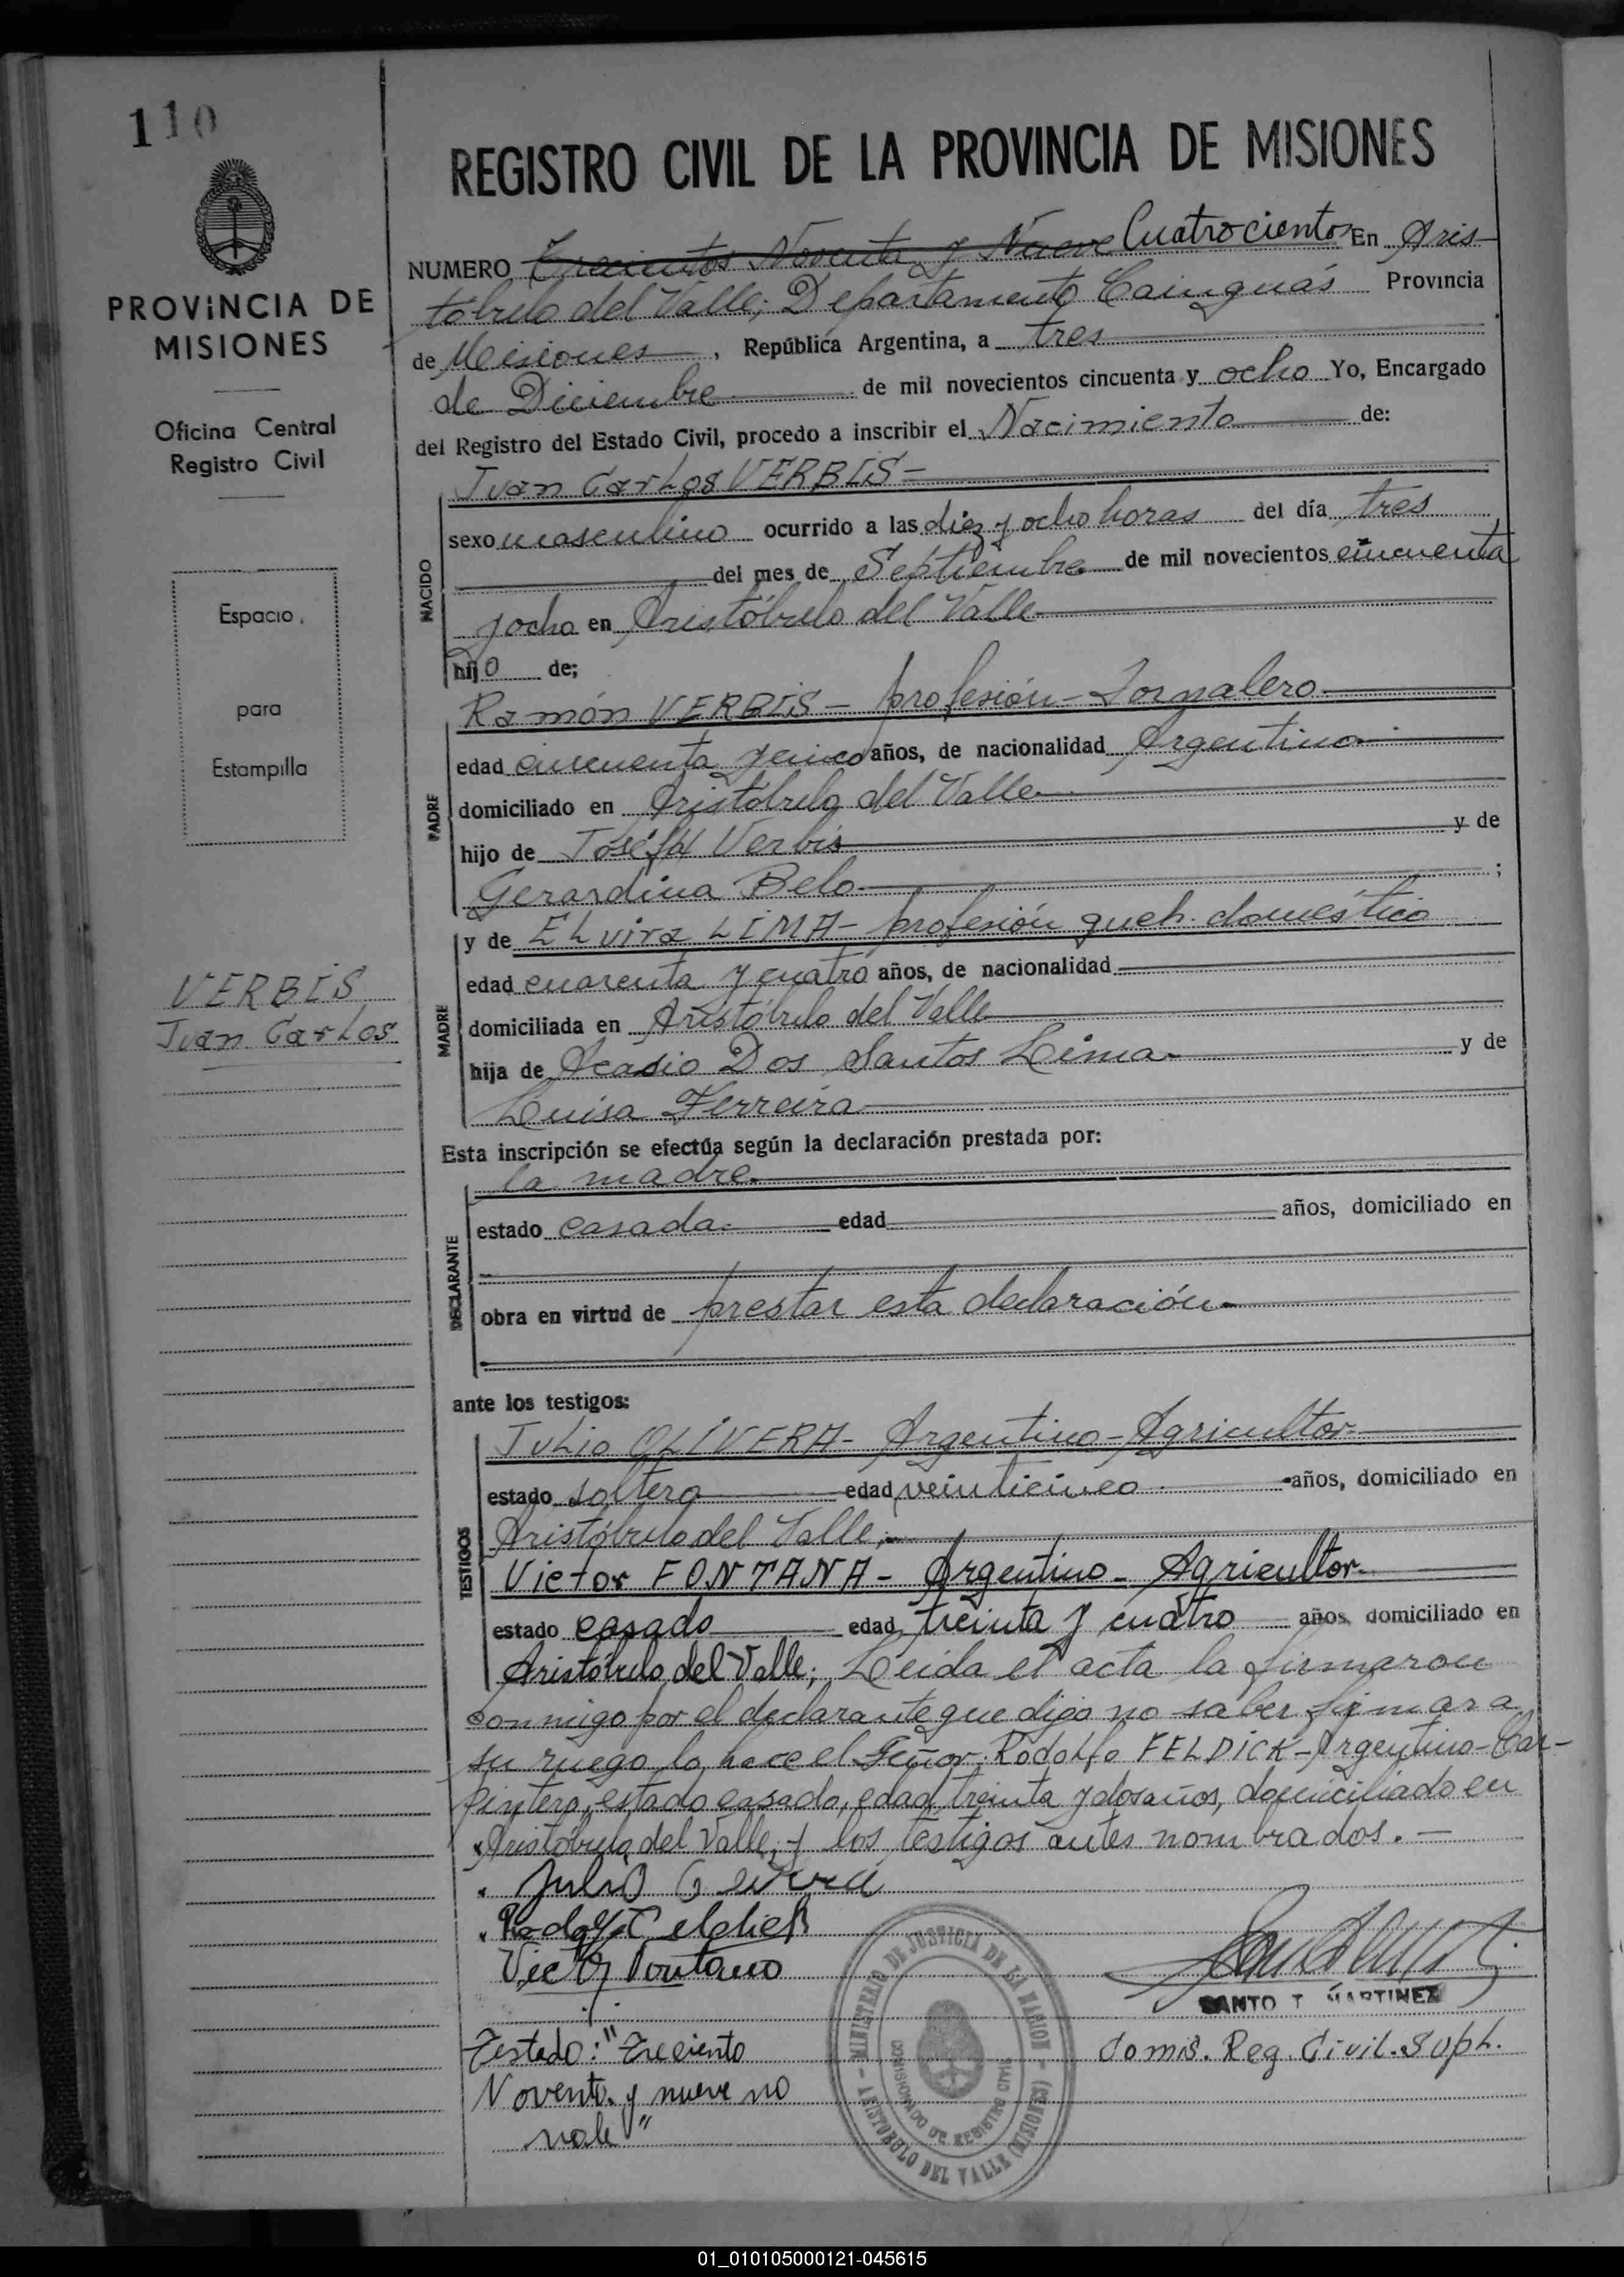 110
PROVINCIA DE
MISIONES
Oficina Central
Registro Civil
Espacio
para
Estampilla
VERBIS
Juan Carlos
REGISTRO CIVIL DE LA PROVINCIA DE MISIONES
NUMERO Trecientos Noventa y Nueve Cuatrocientos En Aris-
tóbulo del Valle; Departamento Cainguás Provincia
de Misiones, República Argentina, a tres
de Diciembre de mil novecientos cincuenta y ocho Yo, Encargado
del Registro del Estado Civil, procedo a inscribir el Nacimiento de:
Juan Carlos VERBIS-
NACIDO
sexo masculino ocurrido a las diez y ocho horas del día tres
del mes de Septiembre de mil novecientos cincuenta
y ocho en Aristóbulo del Valle
hijo de;
Ramón VERBIS- profesión- Jornalero
PADRE
edad cincuenta y cinco años, de nacionalidad Argentino
domiciliado en Aristóbulo del Valle
hijo de Verbis y de
Gerardina Belo ;
y de ELvira LIMA- profesión queh. doméstico
MADRE
edad cuarenta y cuatro años, de nacionalidad
domiciliada en Aristóbulo del Valle
hija de Acasio Dos Santos Lima y de
Luisa Ferreira
Esta inscripción se efectúa según la declaración prestada por:
la madre.
DECLARANTE
estado casada. edad años, domiciliado en
obra en virtud de prestar esta declaración
ante los testigos:
TESTIGOS
Julio OLIVERA- Argentino- Agricultor
estado soltero edad veinticinco años, domiciliado en
Aristóbulo del Valle;
Victor FONTANA- Argentino- Agricultor
estado casado edad treinta y cuatro años, domiciliado en
Aristóbulo del Valle; Leida el acta la firmaron
conmigo por el declarante que dijo no saber firmar a
su ruego lo hace el Señor: Rodolfo FELDICK- Argentino- Car-
pintero, estado casado, edad treinta y dos años, domiciliado en
Aristóbulo del Valle, y los testigos antes nombrados.-
Julio
Victor Fontana
SANTO T. MARTINEZ
Comis. Reg. Civil. Suph.
Testado: "Treciento
Novento y nueve no
vale"
MINISTERIO DE JUSTICIA DE LA NACION
COMISIONADO DE REGISTRO CIVIL
ARISTOBULO DEL VALLE (MISIONES)
01_010105000121-045615